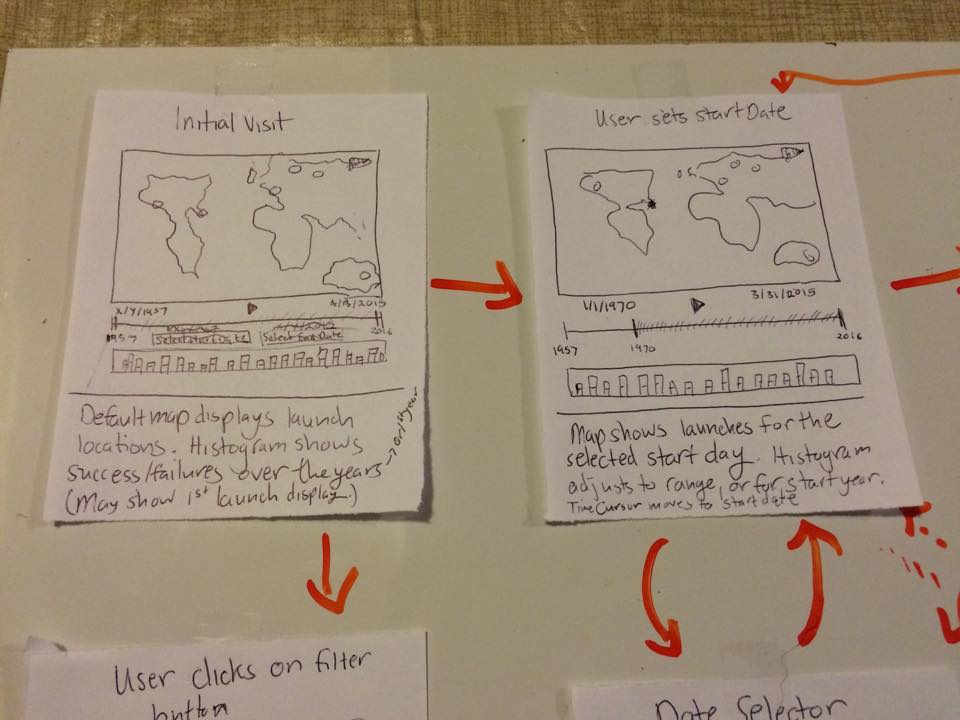 Initial Visit
4/15/2015
1957
2016
Select Start Date
Select End Date
Default map displays launch
locations. Histogram shows
success/failures over the years → or 1st year
(May show 1st launch display.)
User sets startDate
1/1/1970
3/31/2015
1957
1970
2016
Map shows launches for the
selected start day. Histogram
adjusts to range, or for start year.
Time Cursor moves to start date
User clicks on filter
button
Date Selector